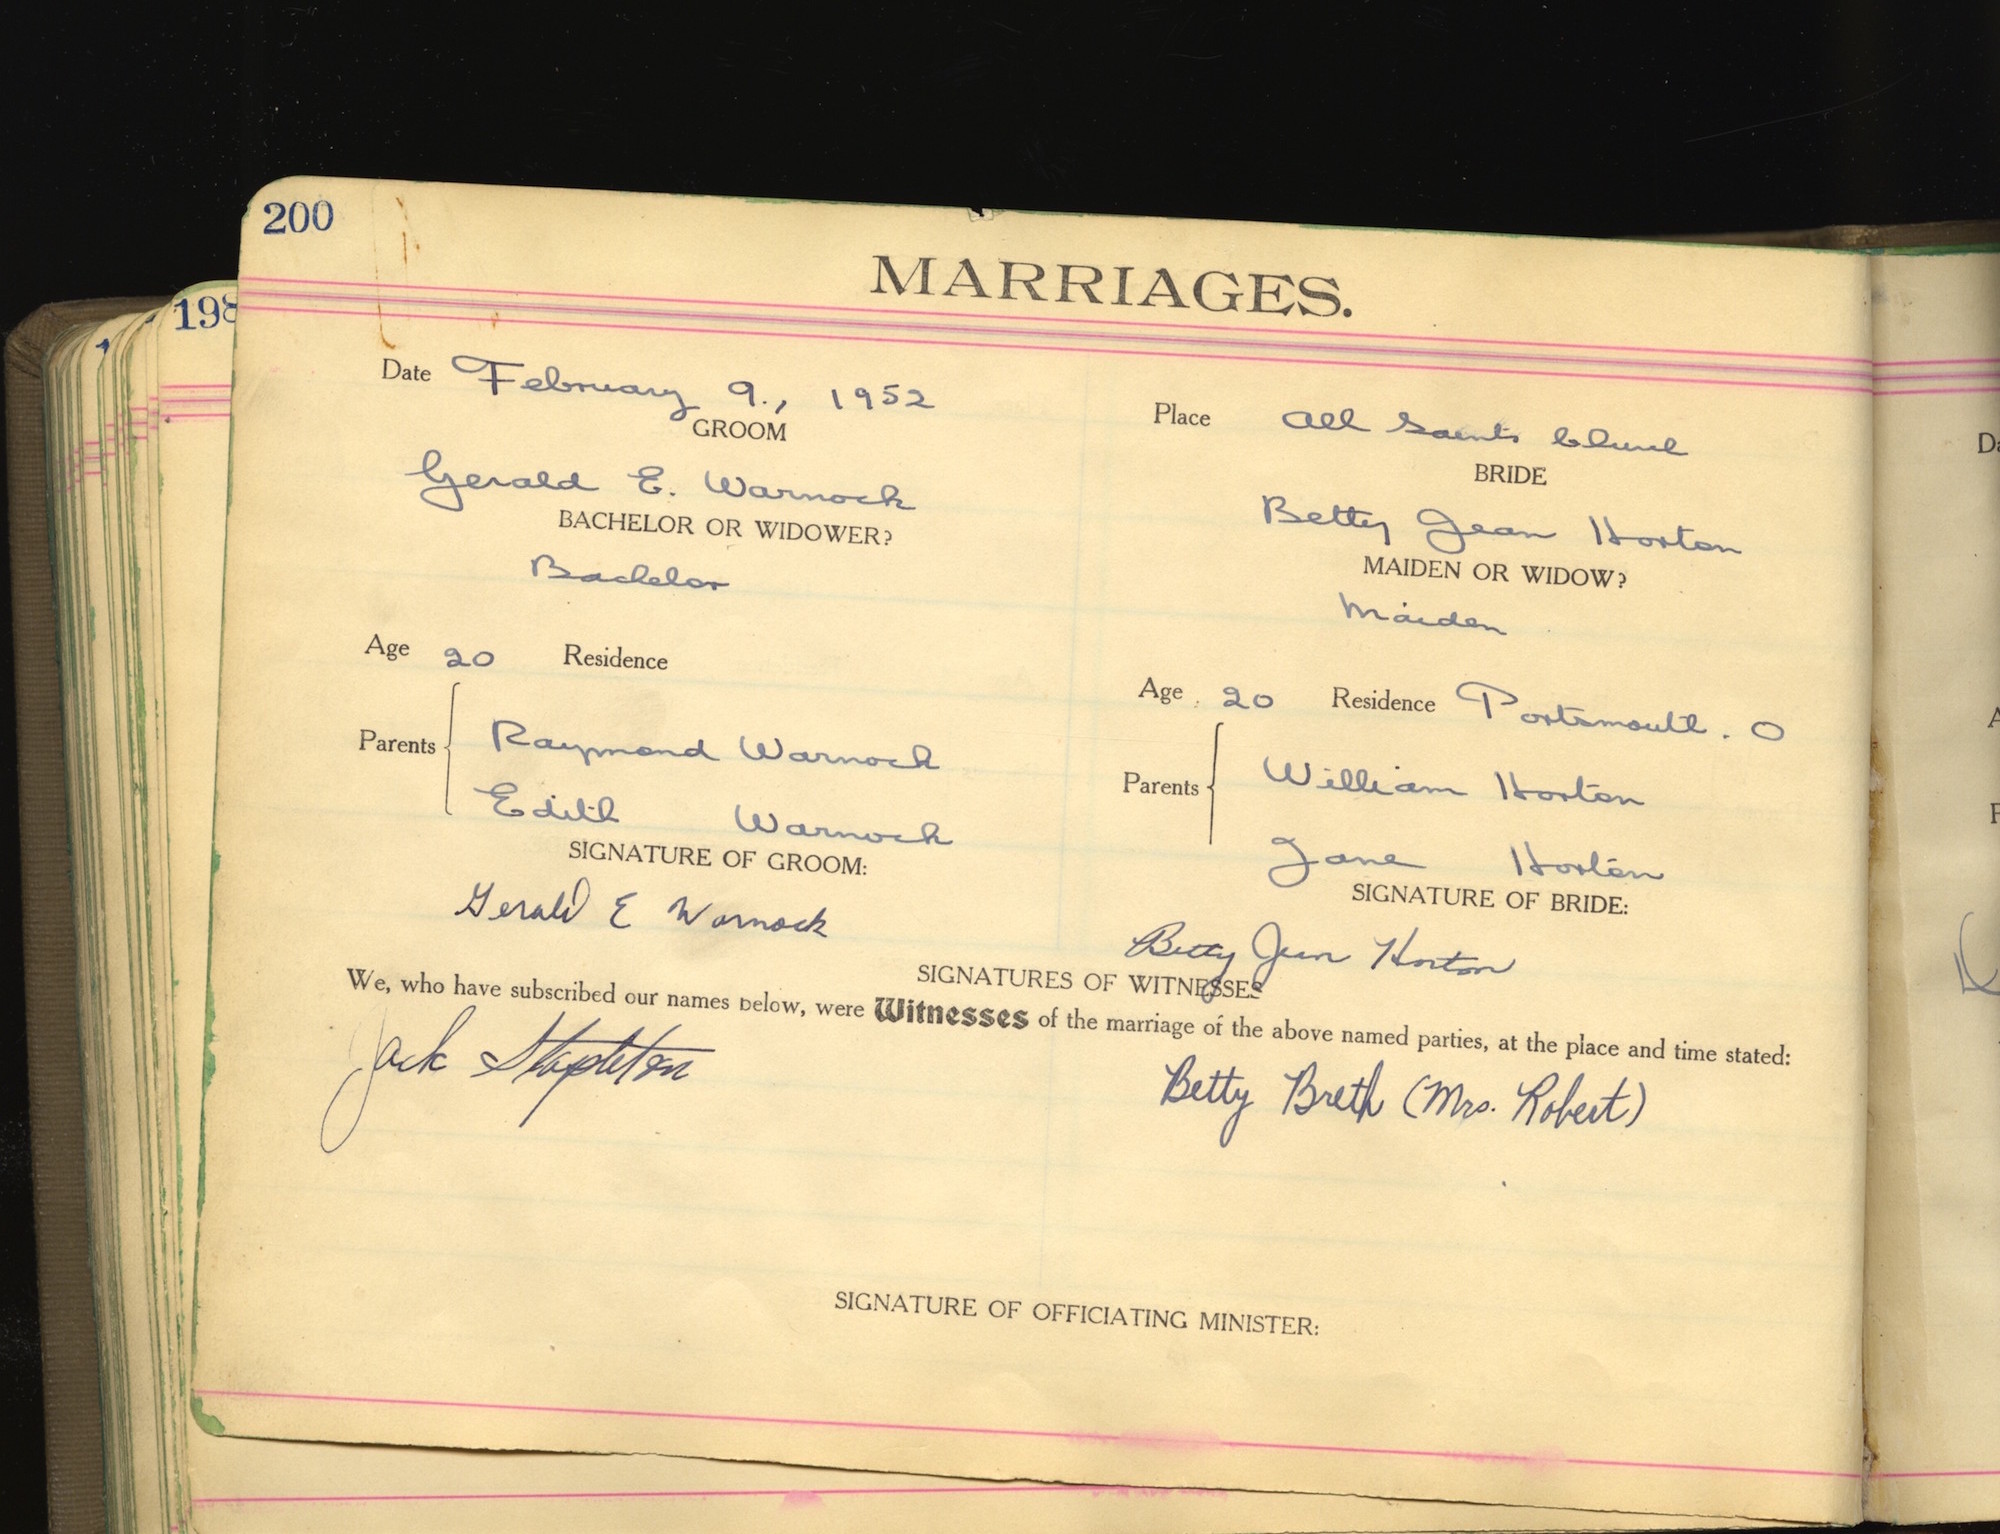 200
198
MARRIAGES.
Date February 9., 1952
Place All Saints Church
GROOM
BRIDE
Gerald E. Warnock
Betty Jean Horton
BACHELOR OR WIDOWER?
MAIDEN OR WIDOW?
Bachelor
Maiden
Age 20 Residence
Age 20 Residence Portsmouth. O
Parents
Raymond Warnock
Edith Warnock
Parents
William Horton
Jane Horton
SIGNATURE OF GROOM:
SIGNATURE OF BRIDE:
Gerald E Warnock
Betty Jean Horton
SIGNATURES OF WITNESSES
We, who have subscribed our names below, were Witnesses of the marriage of the above named parties, at the place and time stated:
Jack Stapleton
Betty Breth (Mrs. Robert)
SIGNATURE OF OFFICIATING MINISTER: